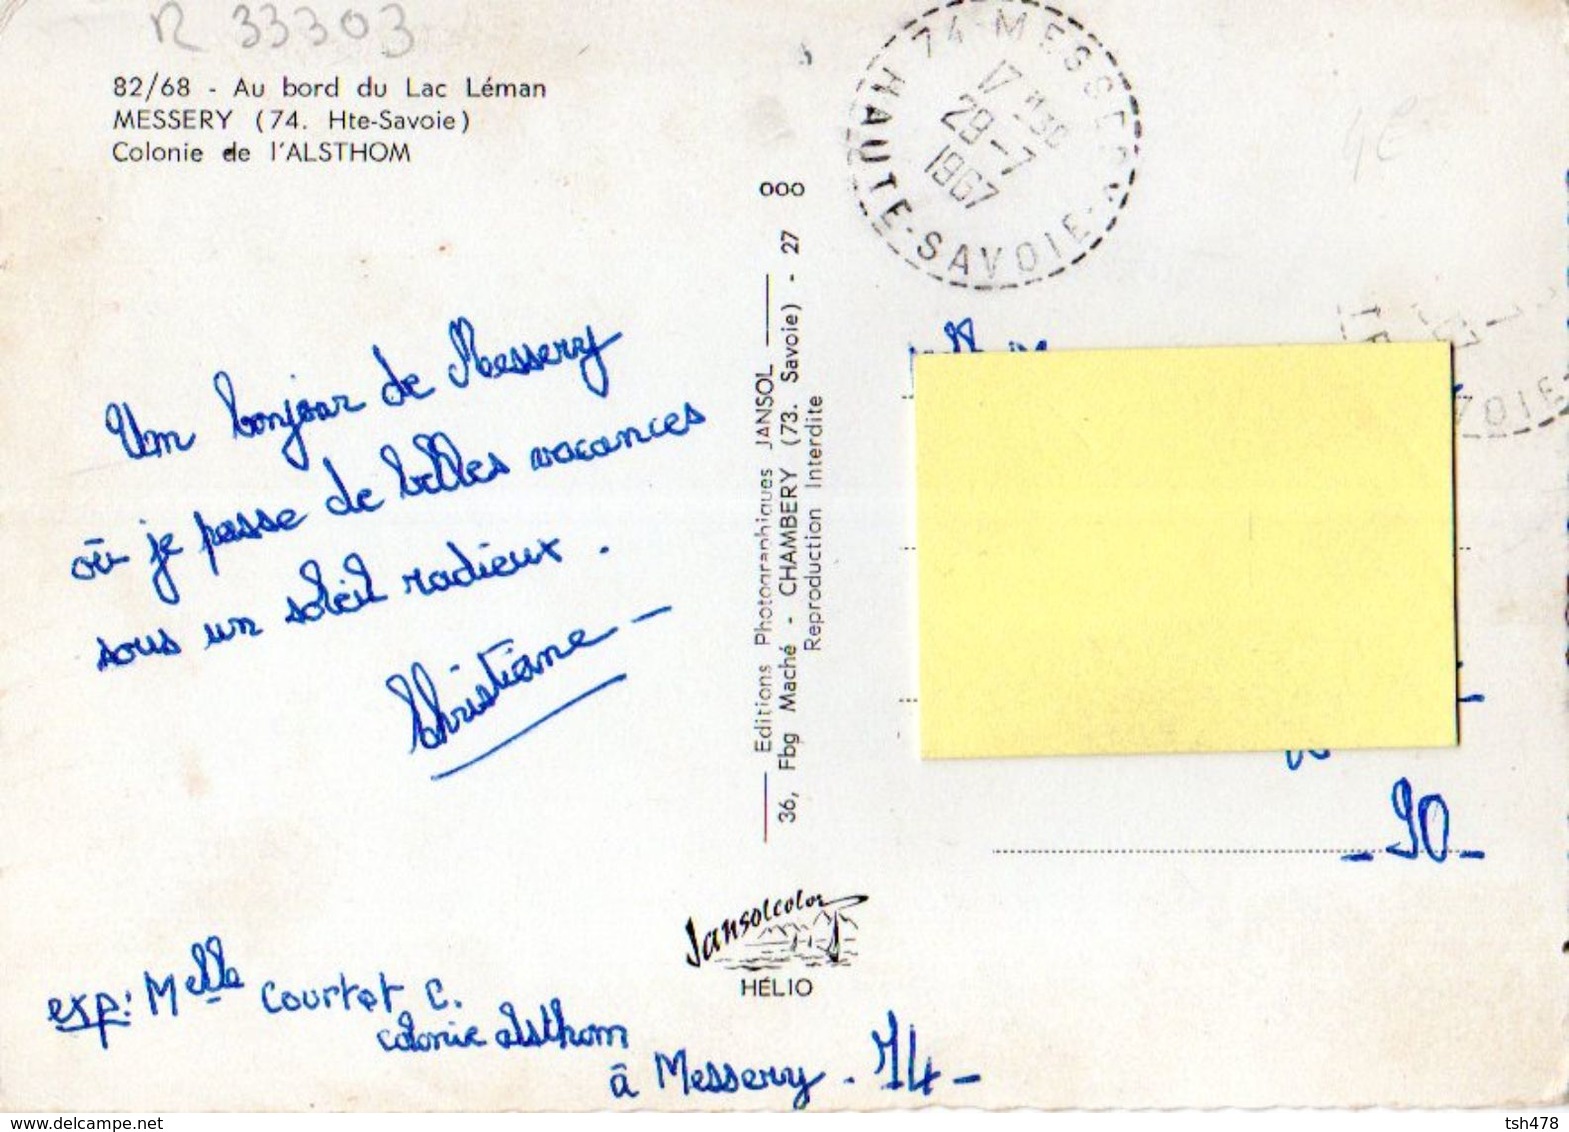 R 33303
82/68 - Au bord du Lac Léman
MESSERY (74. Hte-Savoie)
Colonie de l'ALSTHOM
74-MESSERY
17H30
29-7
1967
HAUTE-SAVOIE
4€
Un bonjour de Messery
où je passe de belles vacances
sous un soleil radieux.
Christiane
ooo
Editions Photographiques JANSOL
36, Fbg Maché - CHAMBERY (73. Savoie) - 27
Reproduction Interdite
- 90 -
Jansolcolor
HÉLIO
exp: Melle Courtot C.
colonie alsthom
à Messery. 74 -
www.delcampe.net
tsh478